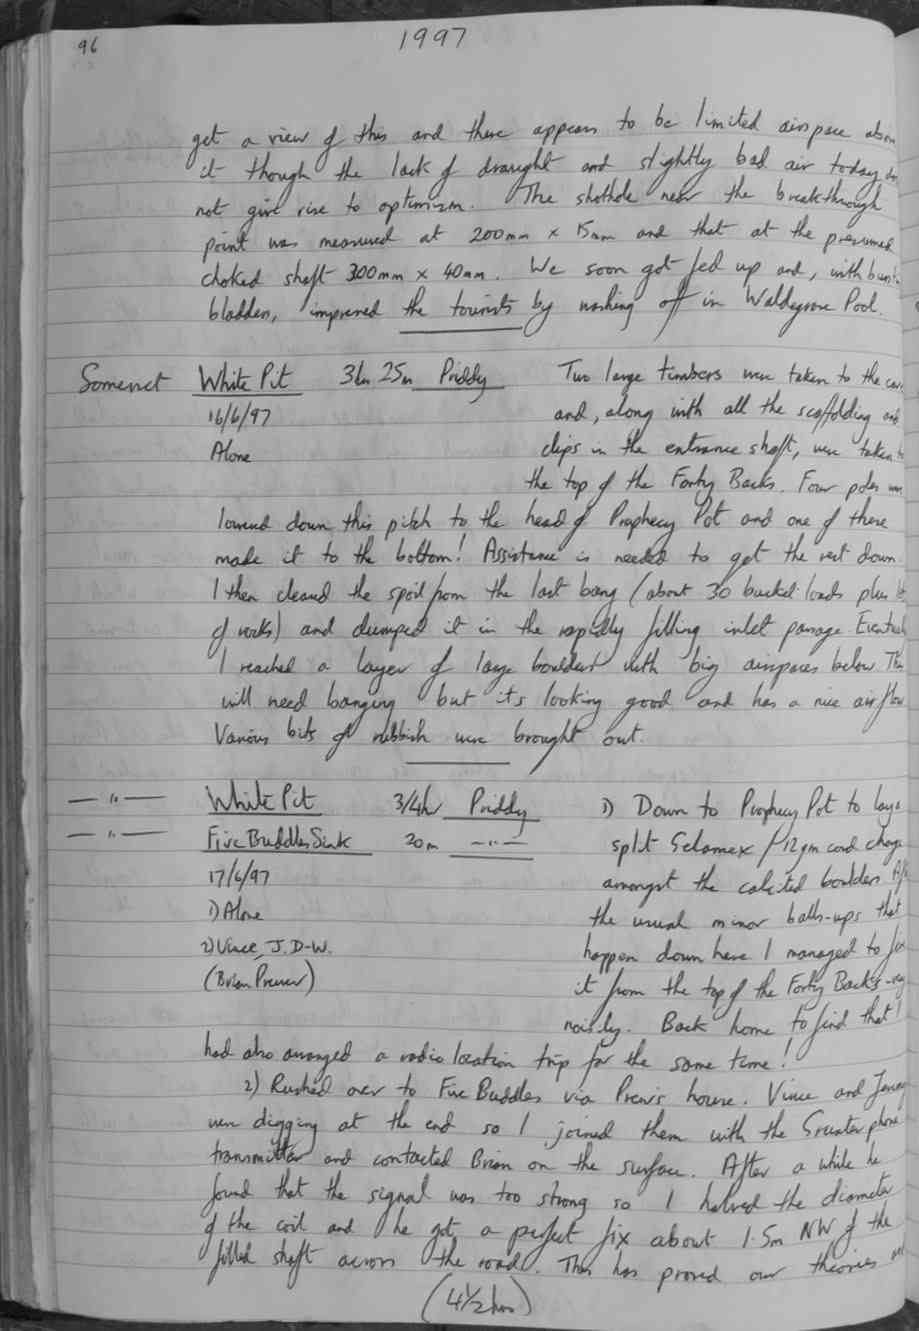 96
1997
get a view of this and there appears to be limited airspace above
it though the lack of draught and slightly bad air today do
not give rise to optimism. The shothole near the breakthrough
point was measured at 200mm x 15mm and that at the presumed
choked shaft 300mm x 40mm. We soon got fed up and, with
bladders, impressed the tourists by washing off in Waldegrave Pool.
Somerset White Pit 3hr 25m Priddy Two large timbers were taken to the
16/6/97 and, along with all the scaffolding and
Alone clips in the entrance shaft, were taken to
the top of the Forty Backs. Four poles were
lowered down this pitch to the head of Prophecy Pot and one of these
made it to the bottom! Assistance is needed to get the rest down.
I then cleared the spoil from the last bang (about 30 bucket loads plus
of rocks) and dumped it in the rapidly filling inlet passage. Eventually
I reached a layer of large boulders with big airspaces below. This
will need banging but it's looking good and has a nice airflow
Various bits of rubbish were brought out.
— " — White Pit 3/4hr Priddy 1) Down to Prophecy Pot to lay a
— " — Five Buddles Sink 20m — " — split Gelamex / 12gm cord charge
17/6/97 amongst the calcited boulders.
1) Alone the usual minor balls-ups that
2) Vince, J.D-W. happen down here I managed to fire
(Brian Prewer) it from the top of the Forty Backs -
noisily. Back home to find that I
had also arranged a radio location trip for the same time!
2) Rushed over to Five Buddles via Prew's house. Vince and
were digging at the end so I joined them with the Grunterphone
transmitter and contacted Brian on the surface. After a while he
found that the signal was too strong so I halved the diameter
of the coil and he got a perfect fix about 1.5m NW of the
filled shaft across the road. This has proved our theories
(4 1/2 hrs)